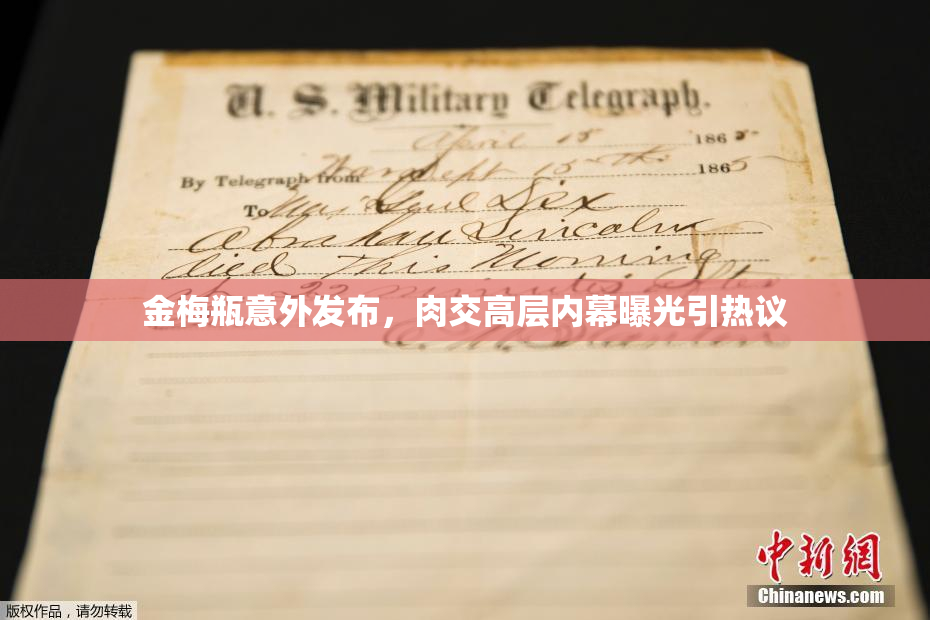 U. S. Military Telegraph.
April 15 1865
By Telegraph from War Dept 15th 1865
To Maj Genl Dix
Abraham Lincoln
died This Morning
at 22 minutes after
金梅瓶意外发布，肉交高层内幕曝光引热议
E. M. Stanton
中新网
Chinanews.com
版权作品，请勿转载